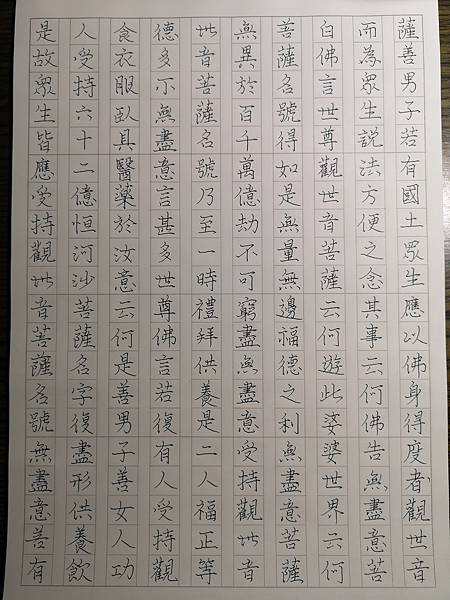 是故眾生皆應受持觀世音菩薩名號無盡意若有
人受持六十二億恒河沙菩薩名字復盡形供養飲
食衣服臥具醫藥於汝意云何是善男子善女人功
德多不無盡意言甚多世尊佛言若復有人受持觀
世音菩薩名號乃至一時禮拜供養是二人福正等
無異於百千萬億劫不可窮盡無盡意受持觀世音
菩薩名號得如是無量無邊福德之利無盡意菩薩
白佛言世尊觀世音菩薩云何遊此娑婆世界云何
而為眾生說法方便之念其事云何佛告無盡意菩
薩善男子若有國土眾生應以佛身得度者觀世音